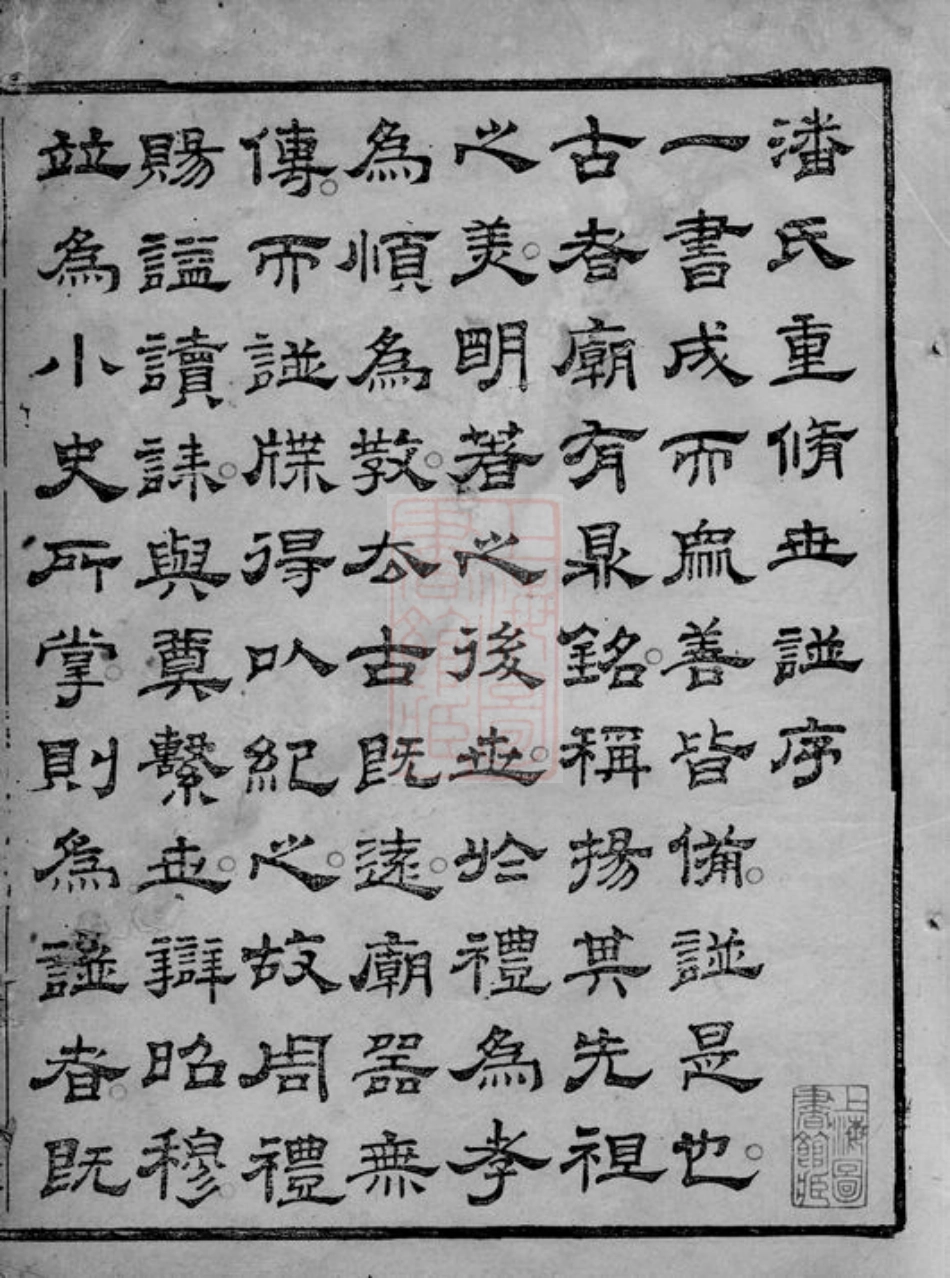 潘氏重脩世譜序
一書成而衆善皆備。譜是也。
古者廟有鼎銘。稱揚其先祖
之美。明著之後世。於禮爲孝
爲順爲教。去古既遠。廟器無
傳。而譜牒得以紀之。故周禮
賜諡讀誄。與奠繫世。辯昭穆。
竝爲小史所掌。則爲譜者。既
上海圖書館藏